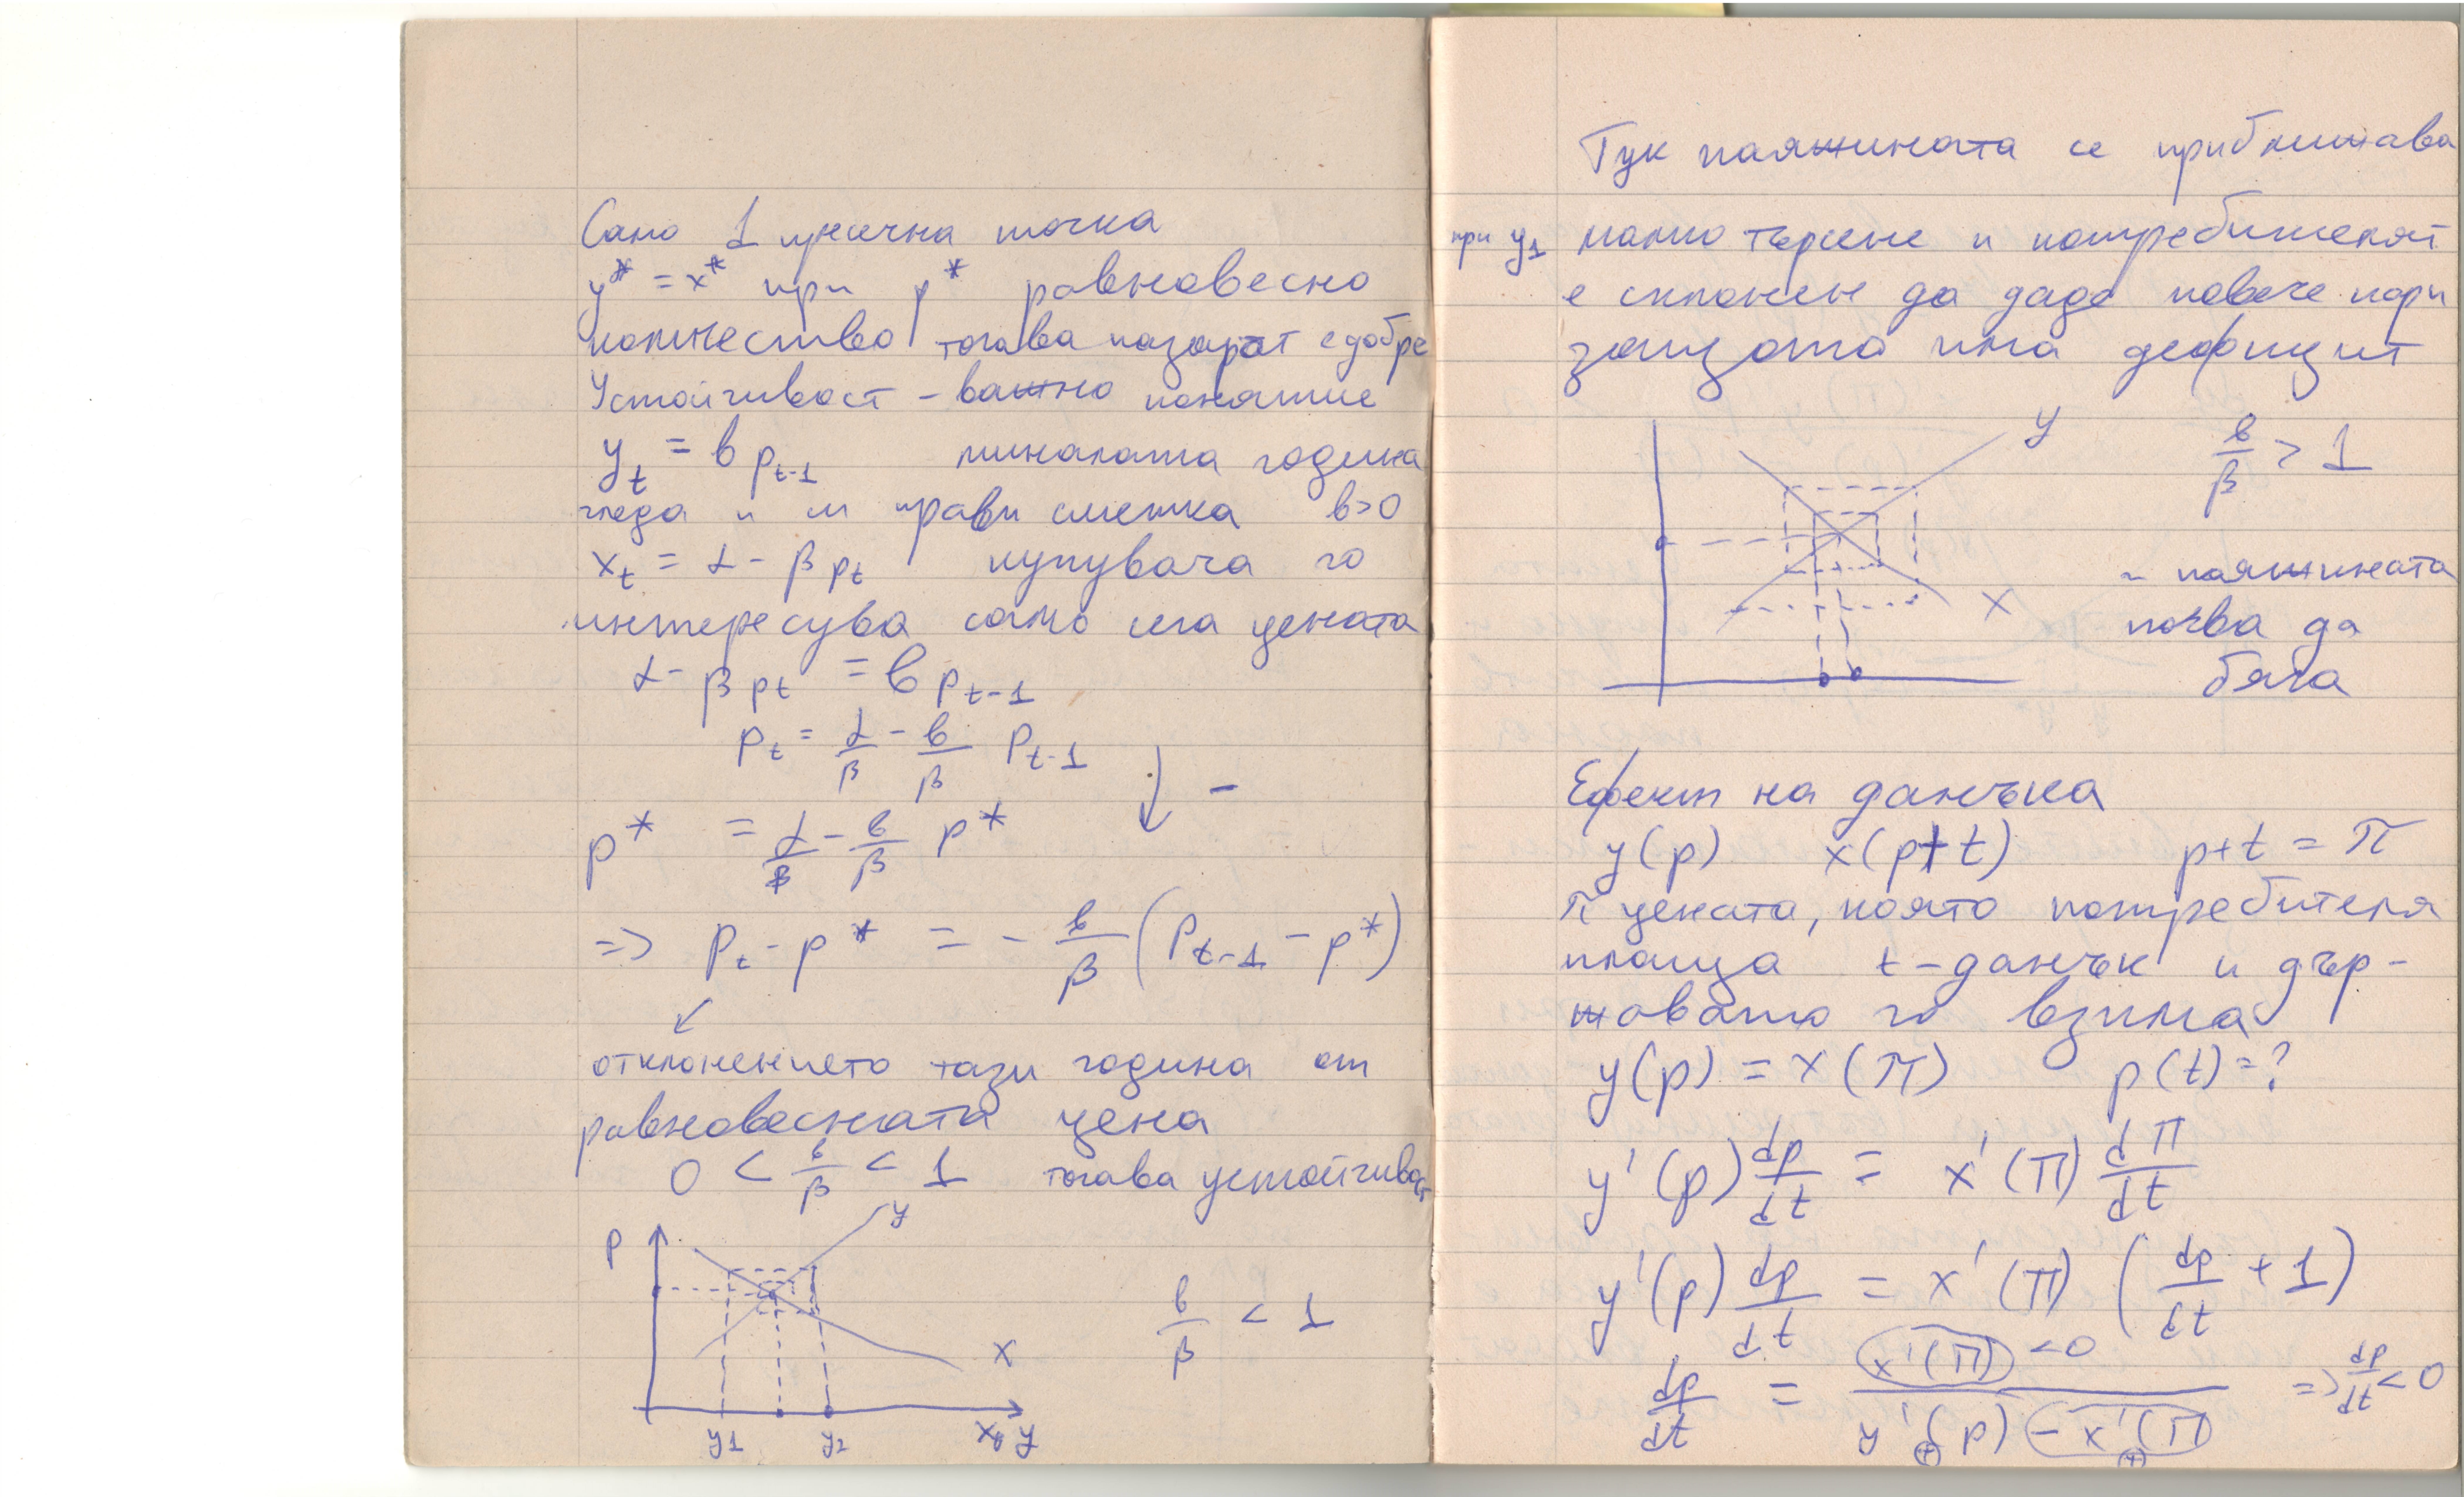 Само 1 пресечна точка
y* = x* при p* равновесно
количество тогава пазарът е добре
Устойчивост - важно понятие
y_t = b p_{t-1} миналата година
гледа и си прави сметка b>0
x_t = α - β p_t купувача го
интересува само сега цената
α - β p_t = b p_{t-1}
p_t = α/β - b/β p_{t-1}
p* = α/β - b/β p* -
=> p_t - p* = - b/β (p_{t-1} - p*)
отклонението тази година от
равновесната цена
0 < b/β < 1 тогава устойчивост
y
p
b/β < 1
x
y1 y2 x, y
Тук паяжината се приближава
при y1 малко търсене и потребителят
е склонен да даде повече пари
защото има дефицит
y b/β > 1
x
~ паяжината
почва да
бяга
Ефект на данъка
y(p) x(p+t) p+t = π
π цената, която потребителя
плаща t - данък и дър-
жавата го взима
y(p) = x(π) p(t) = ?
y'(p) dp/dt = x'(π) dπ/dt
y'(p) dp/dt = x'(π) (dp/dt + 1)
dp/dt = x'(π) <0 / y'(p) - x'(π) => dp/dt < 0
(+) (+)